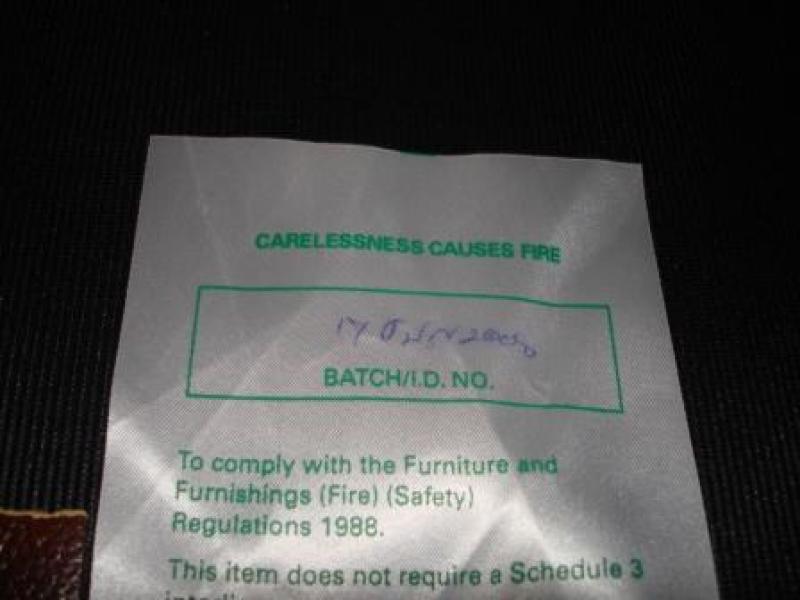 CARELESSNESS CAUSES FIRE
BATCH/I.D. NO.
To comply with the Furniture and
Furnishings (Fire) (Safety)
Regulations 1988.
This item does not require a Schedule 3